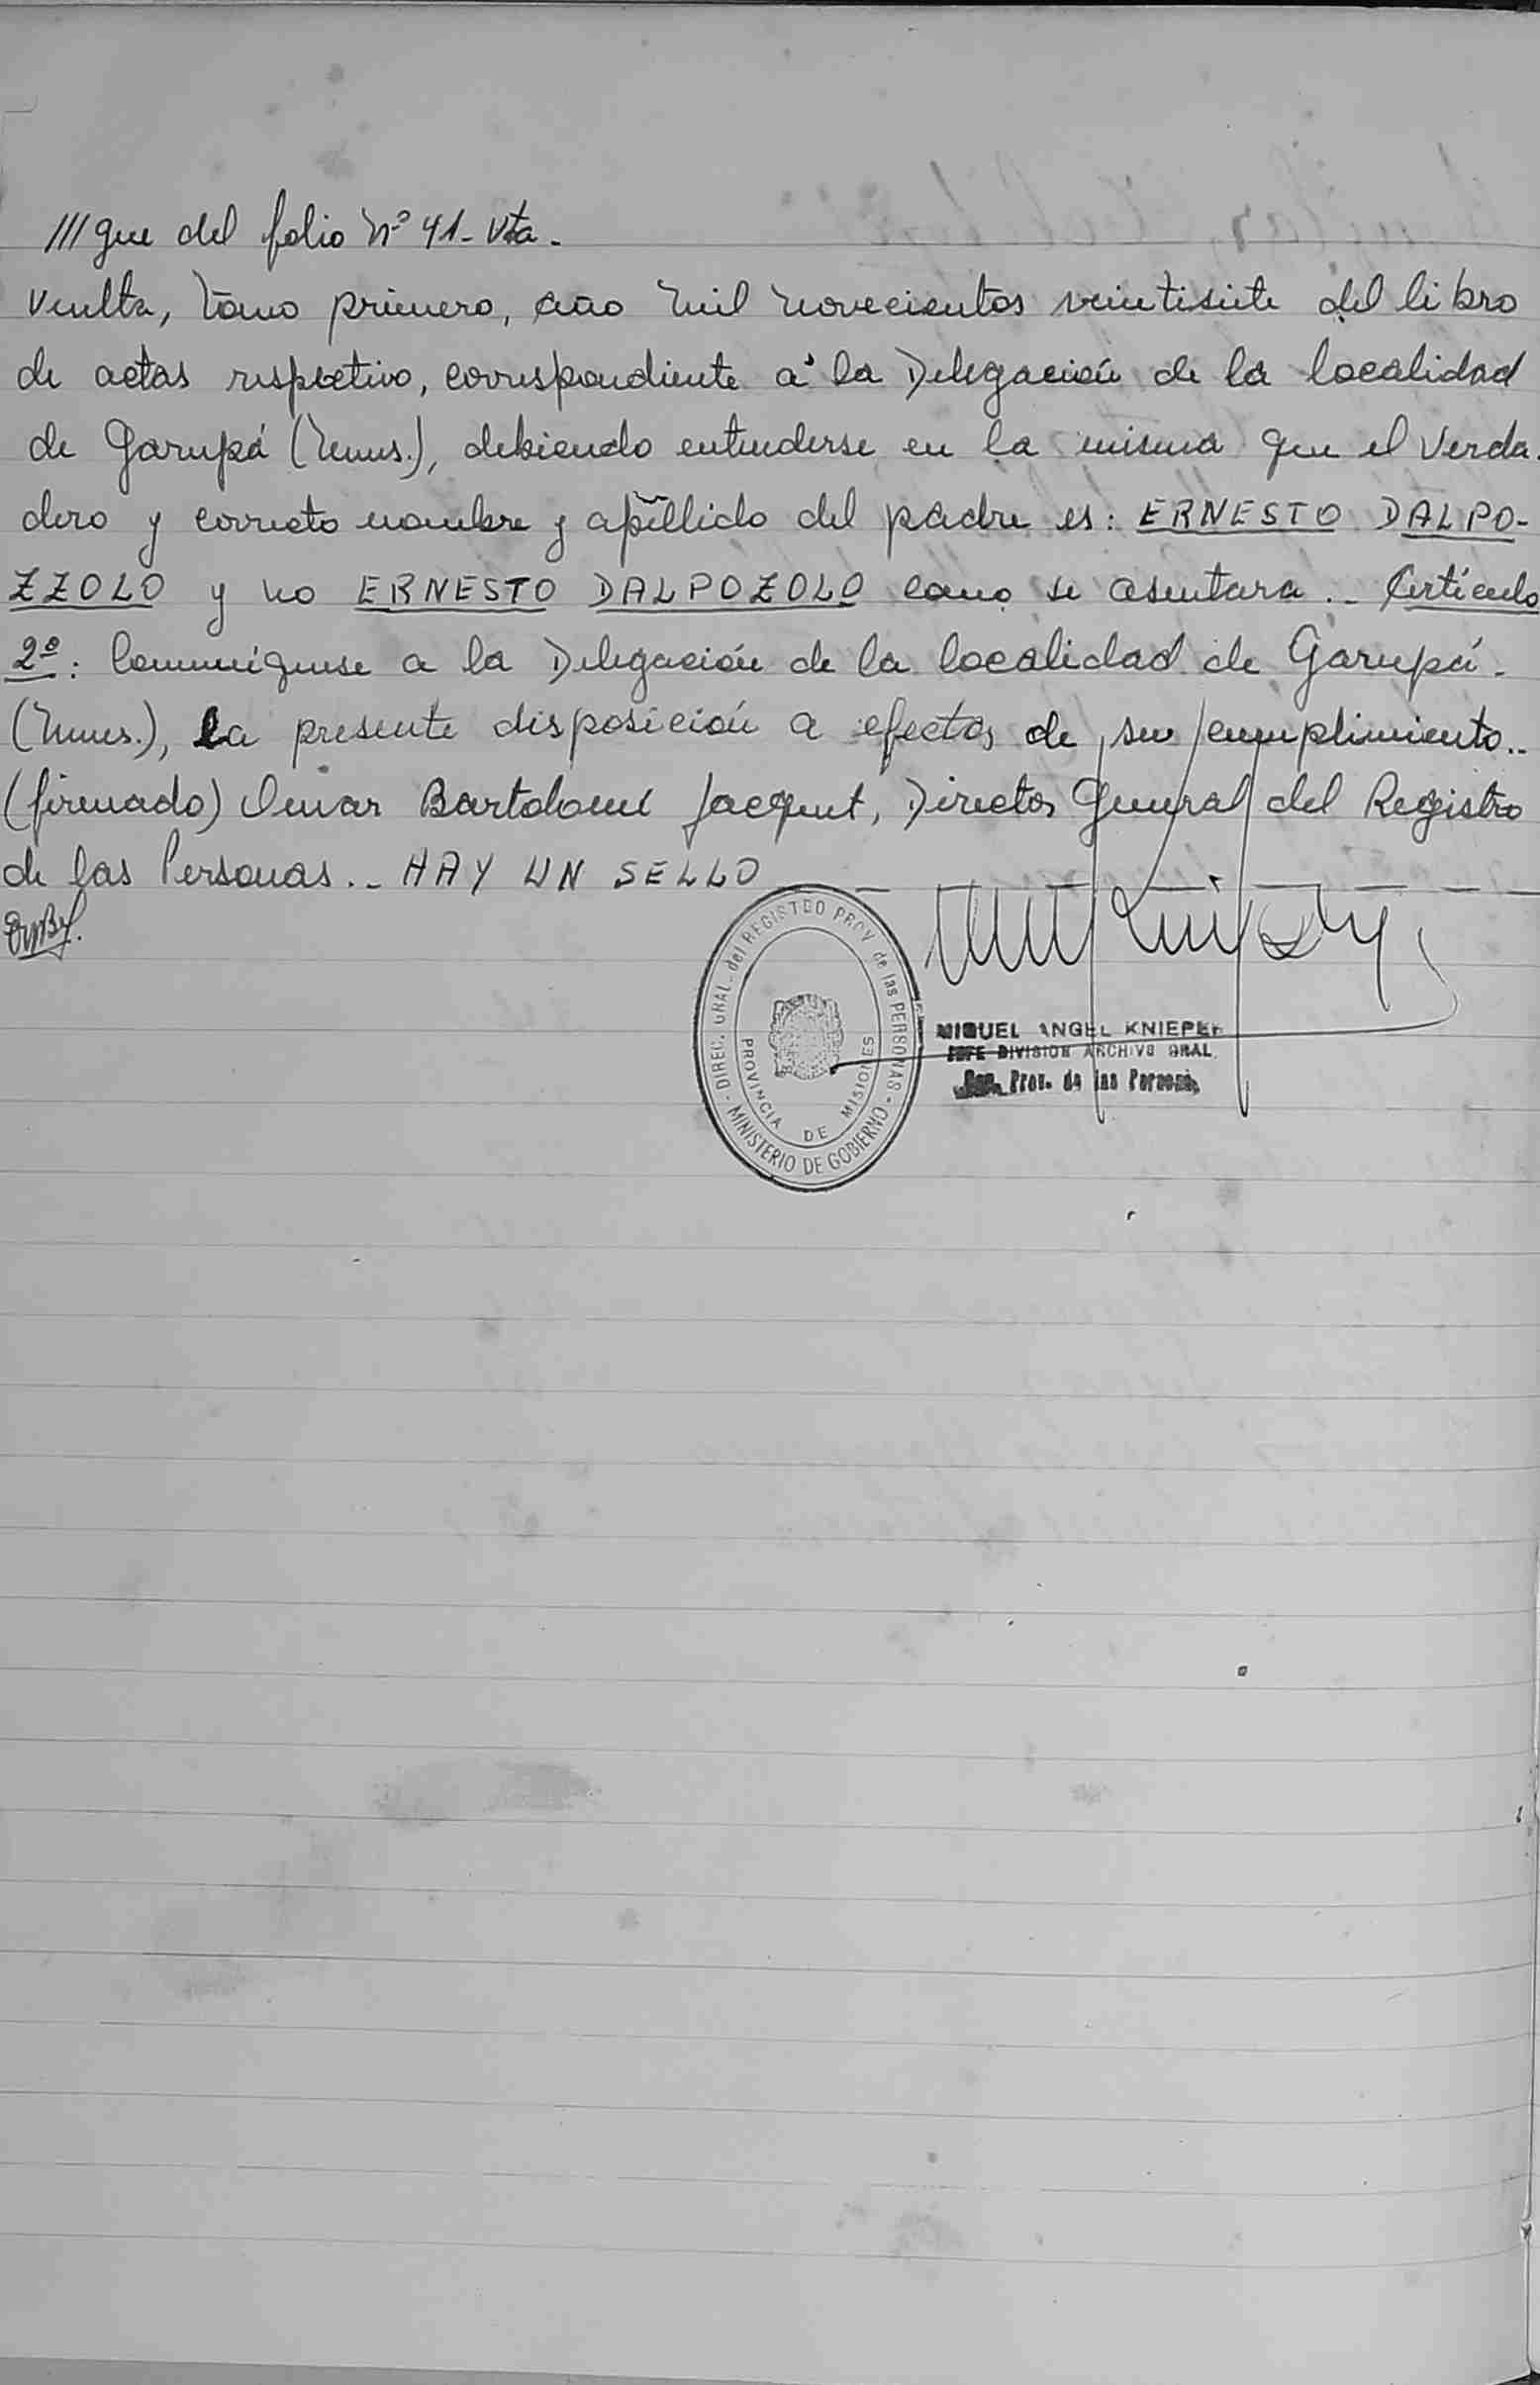 ///gue del folio Nº 41- Vta-
Vuelta, tomo primero, año mil novecientos veintisiete del libro
de actas respectivo, correspondiente a la Delegación de la localidad
de Garupá (Mnes.), debiendo entenderse en la misma que el verda-
dero y correcto nombre y apellido del padre es: ERNESTO DALPO-
ZZOLO y no ERNESTO DALPOZOLO como se asentara.- Artículo
2º: Comuníquese a la Delegación de la localidad de Garupá-
(Mnes.), La presente disposición a efectos de su cumplimiento..
(firmado) Omar Bartolomé Jacquet, Director General del Registro
de las Personas.- HAY UN SELLO
DIREC. GRAL. del REGISTRO PROV. de las PERSONAS - MINISTERIO DE GOBIERNO -
PROVINCIA DE MISIONES
MIGUEL ANGEL KNIEPER
JEFE DIVISION ARCHIVO GRAL.
Prov. de las Personas